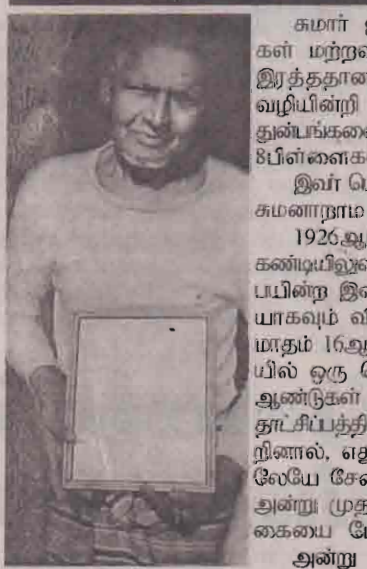 சுமார்
கள் மற்ற
இரத்ததான
வழியின்றி
துன்பங்களை
8பிள்ளைக
இவர் பெ
சுமனாறாம
1926ஆ
கண்டியிலு
பயின்ற இவ
யாகவும் வி
மாதம் 16ஆ
யில் ஒரு
ஆண்டுகள்
தாட்சிப்பத்தி
றினால், எது
லேயே சேவ
அன்று முத
கையை
அன்று